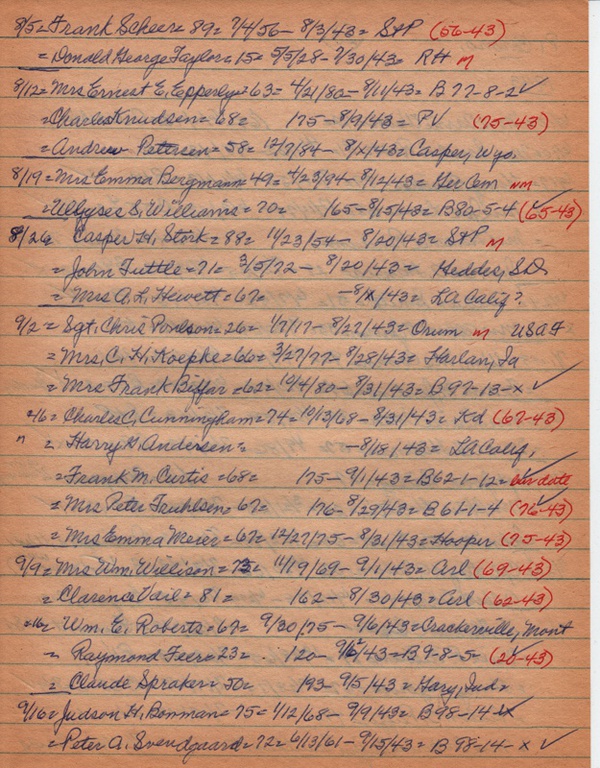 8/5= Frank Scheer= 89= 7/4/56- 8/3/43= S+P (56-43)
= Donald George Taylor= 15= 5/5/28- 7/30/43= RH m
8/12= Mrs Ernest E. Epperly= 63= 4/21/80- 8/11/43= B 77-8-2 ✓
= Charles Knudsen= 68= 175- 8/9/43= PV (75-43)
= Andrew Petersen= 58= 12/7/84- 8/x/43= Casper, Wyo.
8/19= Mrs Emma Bergmann= 49= 4/23/94- 8/12/43= Ger Cem nm
= Ullyses S. Williams= 70= 165- 8/15/43= B80-5-4 ✓ (65-43)
8/26= Casper H. Stork= 88= 11/23/54- 8/20/43= S+P m
= John Tuttle= 71= 3/5/72- 8/20/43= Hedder, S.D.
= Mrs A. L. Hewett= 67= -8/x/43= LA Calif?
9/2= Sgt. Chris Poulson= 26= 1/7/17- 8/27/43= Orum m USAF
= Mrs. C. H. Koepke= 66= 3/27/77- 8/28/43= Harlan, Ia
= Mrs Frank Biffar= 62= 10/4/80- 8/31/43= B 97-13-x ✓
=16= Charles C. Cunningham= 74= 10/13/68- 8/31/43= Kd (67-43)
" = Harry H. Andersen= -8/18/43= LA Calif.
= Frank M. Curtis= 68= 175- 9/1/43= B62-1-12= ✓ date
= Mrs Peter Truhlsen= 67= 176- 8/29/43= B 61-1-4 ✓ (76-43)
= Mrs Emma Meier= 67= 12/27/75- 8/31/43= Hooper (75-43)
9/9= Mrs Wm. Willison= 73= 11/19/69- 9/1/43= Arl (69-43)
= Clarence Vail= 81= 162- 8/30/43= Arl (62-43)
=16= Wm. E. Roberts= 67= 9/30/75- 9/6/43= Crackerville, Mont
= Raymond Feer= 23= 120- 9/6/43= B 9-8-5= ✓ (20-43)
= Claude Spraker= 50= 193- 9/5/43= Gary, Ind=
9/16= Judson H. Bonman= 75= 1/12/68- 9/9/43= B 98-14-x
= Peter A. Svendgaard= 72= 6/13/61- 9/15/43= B 98-14-x ✓